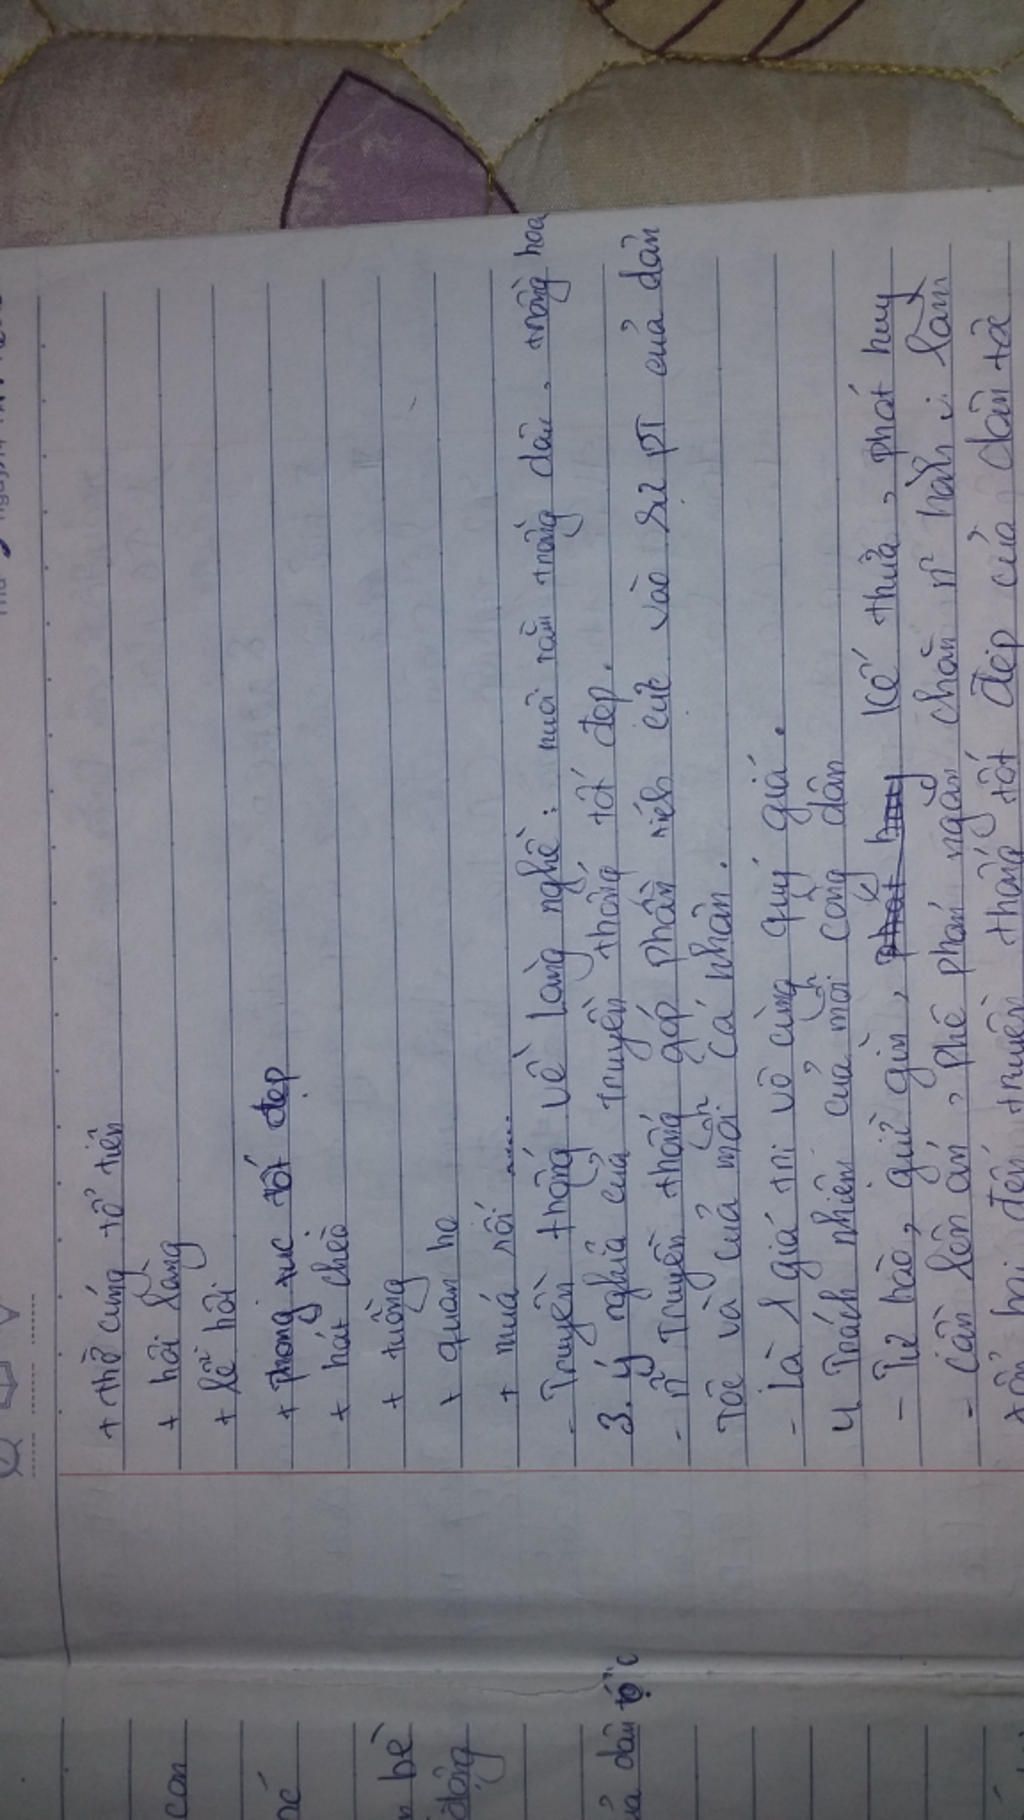 + thờ cúng tổ tiên
+ hội làng
+ lễ hội
+ phong tục tốt đẹp
+ hát chèo
+ tuồng
+ quan họ
+ múa rối .....
- Truyền thống về làng nghề : nuôi tằm trồng dâu , trồng hoa
3. ý nghĩa của truyền thống tốt đẹp.
- n~ Truyền thống góp phần tích cực vào sự PT của dân
Tộc và của mỗi cá nhân.
- Là 1 giá trị vô cùng quý giá .
4 Trách nhiệm của mỗi công dân
- Tự hào , giữ gìn , phát huy kế thừa , phát huy
- Cần lên án , phê phán ngăn chặn n~ hành vi làm
tổn hại đến truyền thống tốt đẹp của dân tộc
con
bè
động
dân tộc